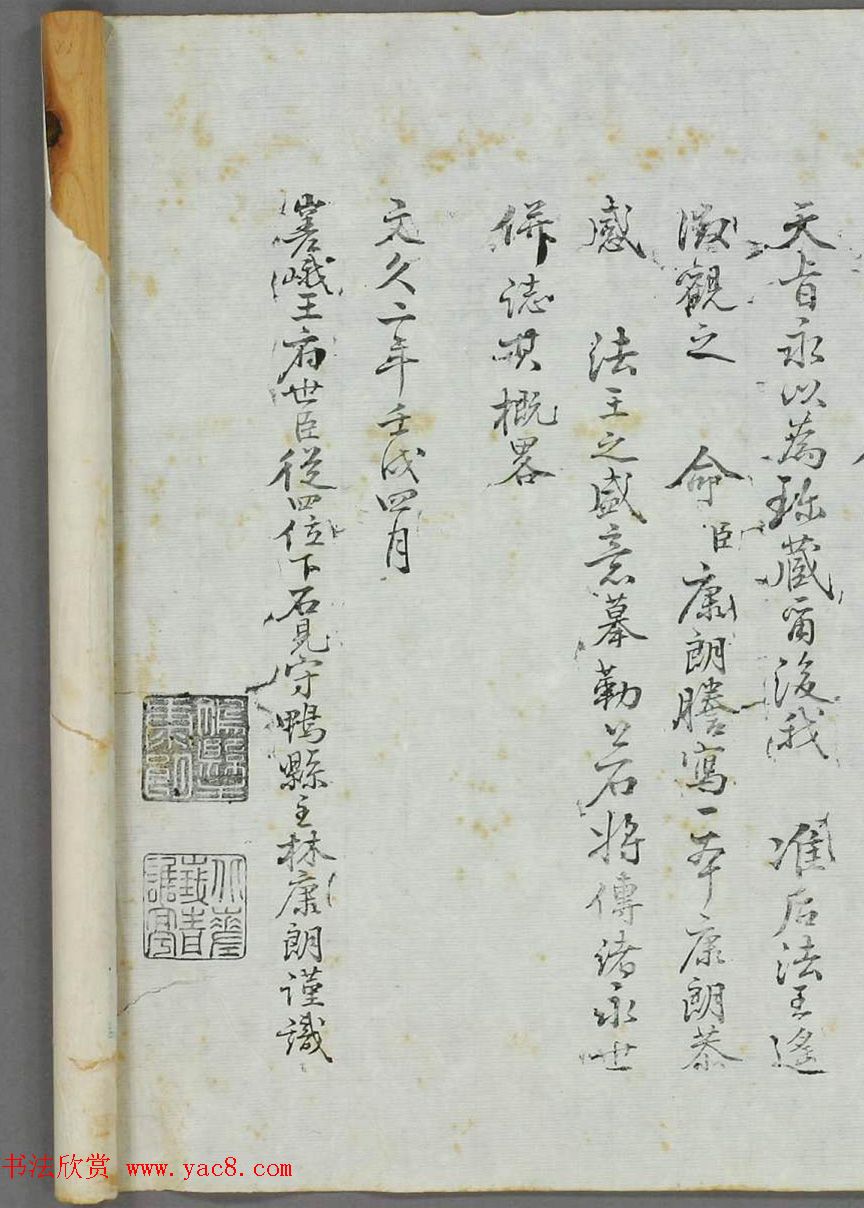 天旨永以為珎藏甭後我 准后法王遙
徵觀之 命臣康朗謄寫一本康朗恭
感 法王之盛意摹勒 若將傳諸永世
併誌 概畧
文久二年壬戌四月
嵳峨王府世臣從四位下石見守鴨縣主林康朗謹識
书法欣赏 www.yac8.com